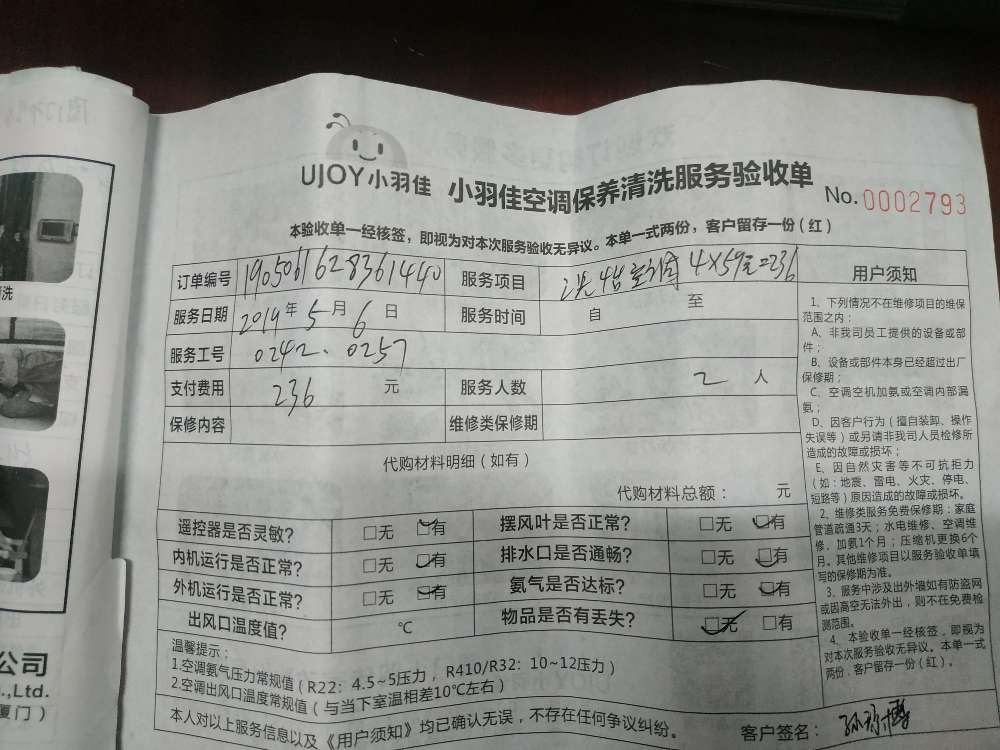 UJOY小羽佳 小羽佳空调保养清洗服务验收单 No.0002793
本验收单一经核签，即视为对本次服务验收无异议。本单一式两份，客户留存一份（红）
订单编号 1905061628361440 服务项目 4X59元=236
服务日期 2019年5月6日 服务时间 自 至
服务工号 0242、0257
支付费用 236 元 服务人数 2 人
保修内容 维修类保修期
代购材料明细（如有）
代购材料总额： 元
遥控器是否灵敏？ □无 □有 摆风叶是否正常？ □无 □有
内机运行是否正常？ □无 □有 排水口是否通畅？ □无 □有
外机运行是否正常？ □无 □有 氨气是否达标？ □无 □有
出风口温度值？ ℃ 物品是否有丢失？ □无 □有
温馨提示：
1.空调氨气压力常规值（R22：4.5~5压力， R410/R32：10~12压力）
2.空调出风口温度常规值（与当下室温相差10℃左右）
本人对以上服务信息以及《用户须知》均已确认无误，不存在任何争议纠纷。
客户签名：
用户须知
1、下列情况不在维修项目的维保
范围之内：
A、非我司员工提供的设备或部
件；
B、设备或部件本身已经超过出厂
保修期；
C、空调空机加氨或空调内部漏
氨；
D、因客户行为（擅自装卸、操作
失误等）或另请非我司人员检修所
造成的故障或损坏；
E、因自然灾害等不可抗拒力
（如：地震、雷电、火灾、停电、
短路等）原因造成的故障或损坏。
2、维修类服务免费保修期：家庭
管道疏通3天；水电维修、空调维
修、加氨1个月；压缩机更换6个
月。其他维修项目以服务验收单填
写的保修期为准。
3、服务中涉及出外墙如有防盗网
或因高空无法外出，则不在免费检
测范围。
4、本验收单一经核签，即视为
对本次服务验收无异议。本单一式
两份，客户留存一份（红）。
洗
公司
.,Ltd.
厦门）